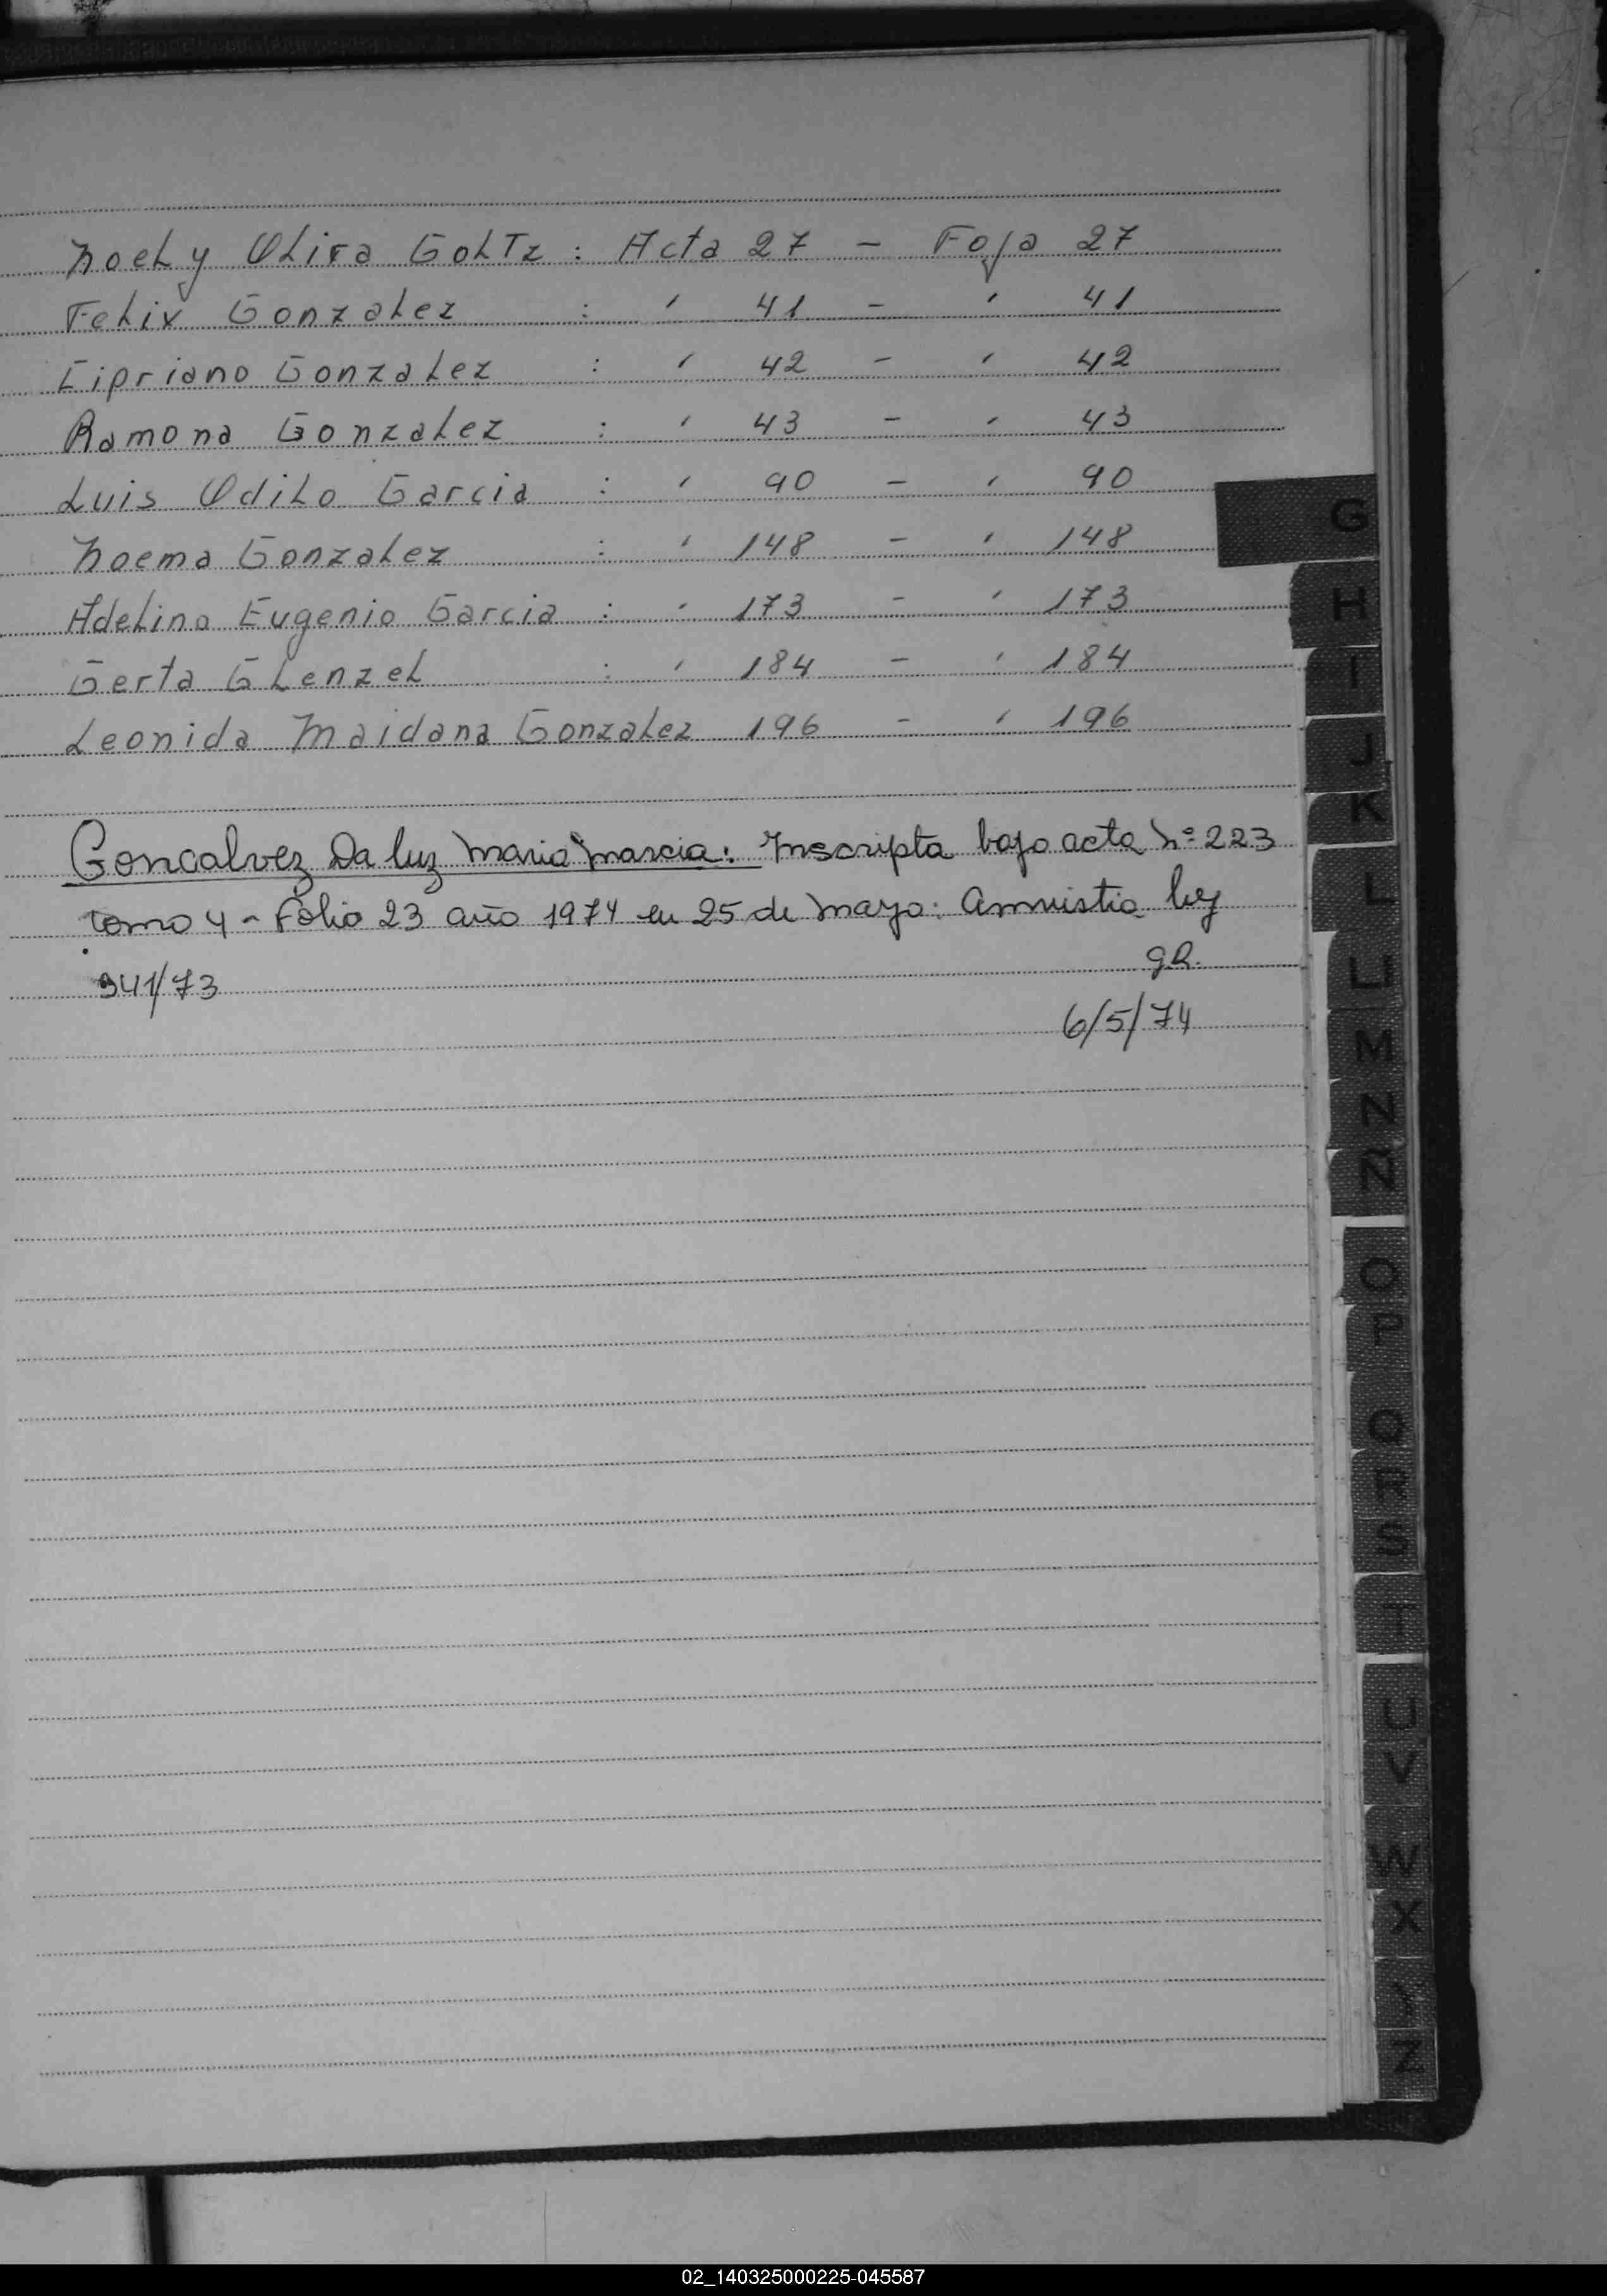 Noely Olira Goltz : Acta 27 - Foja 27
Felix Gonzalez : ' 41 - ' 41
Cipriano Gonzalez : ' 42 - ' 42
Ramona Gonzalez : ' 43 - ' 43
Luis Odilo Garcia : ' 90 - ' 90
Noema Gonzalez : ' 148 - ' 148
Adelino Eugenio Garcia : ' 173 - ' 173
Gerta Glenzel : ' 184 - ' 184
Leonida Maidana Gonzalez 196 - ' 196
Goncalvez Da luz Maria Marcia: Inscripta bajo acta Nº 223
tomo 4 - Folio 23 año 1974 en 25 de Mayo: Amnistia ley
941/73
g.R.
6/5/74
G
H
I
J
K
L
LL
M
N
Ñ
O
P
Q
R
S
T
U
V
W
X
Z
02_140325000225-045587